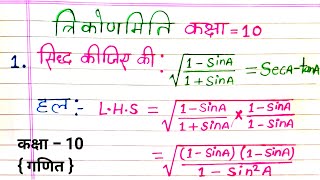 त्रिकोणमिति कक्षा = 10
1. सिद्ध कीजिए की : √(1 - sinA / 1 + sinA) = SecA - tanA
हल : L.H.S = √(1 - SinA / 1 + SinA × 1 - SinA / 1 - SinA)
कक्षा – 10
{ गणित }
= √((1 - SinA) (1 - SinA) / 1 - Sin²A)